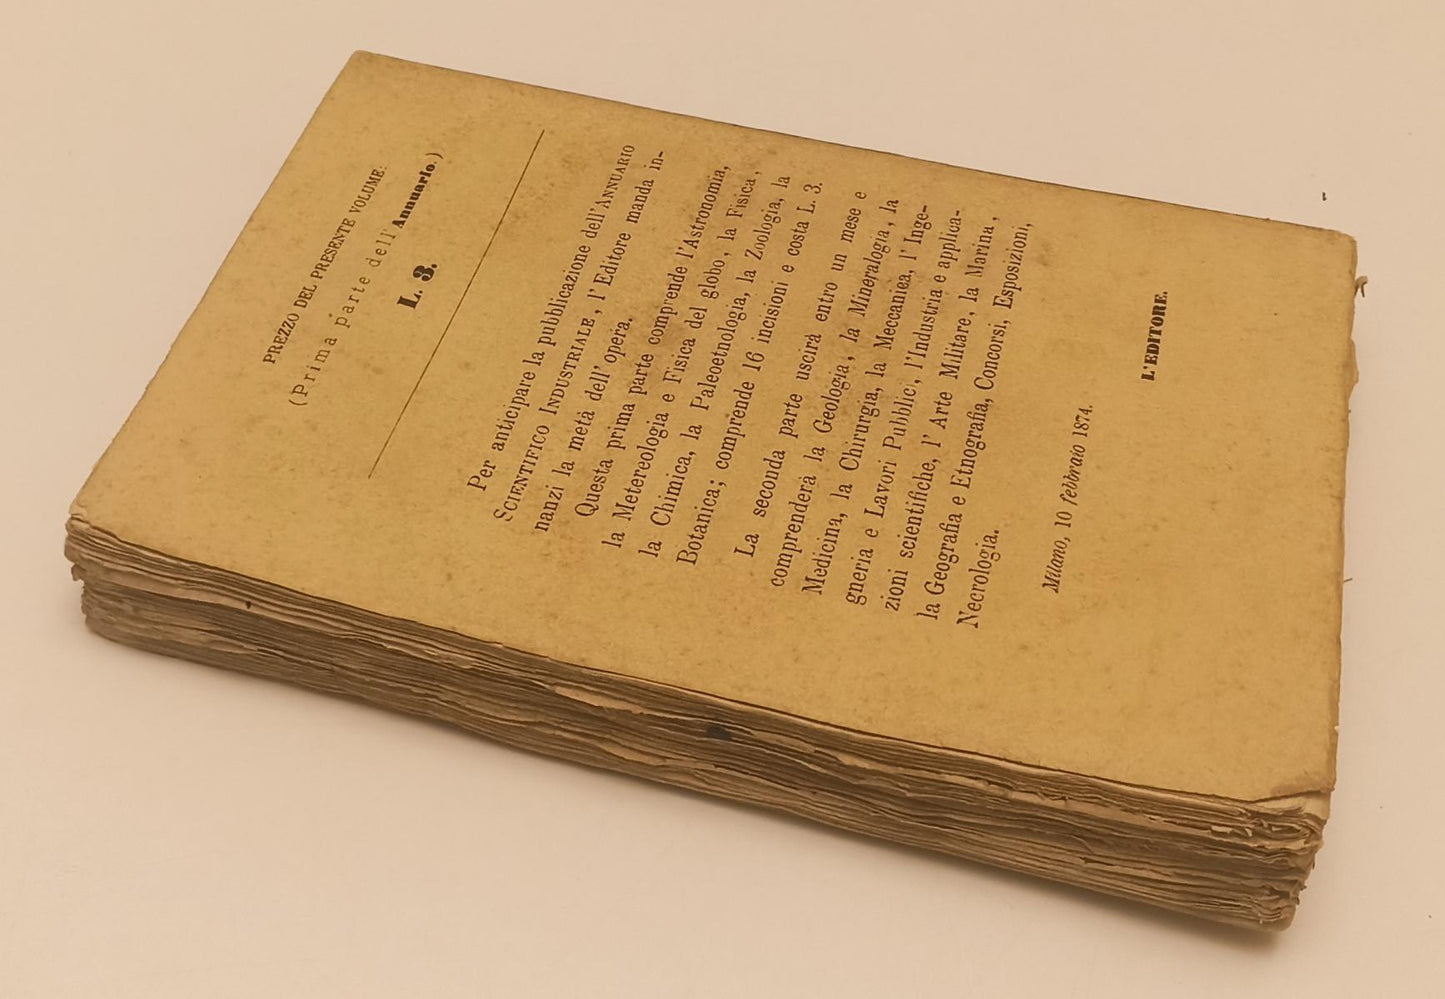 PREZZO DEL PRESENTE VOLUME:
(Prima parte dell'Annuario.)
L. 3.
Per anticipare la pubblicazione dell'ANNUARIO
SCIENTIFICO INDUSTRIALE, l'Editore manda in-
nanzi la metà dell'opera.
Questa prima parte comprende l'Astronomia,
la Metereologia e Fisica del globo, la Fisica,
la Chimica, la Paleoetnologia, la Zoologia, la
Botanica; comprende 16 incisioni e costa L. 3.
La seconda parte uscirà entro un mese e
comprenderà la Geologia, la Mineralogia, la
Medicina, la Chirurgia, la Meccanica, l'Inge-
gneria e Lavori Pubblici, l'Industria e applica-
zioni scientifiche, l'Arte Militare, la Marina,
la Geografia e Etnografia, Concorsi, Esposizioni,
Necrologia.
Milano, 10 febbraio 1874.
L'EDITORE.